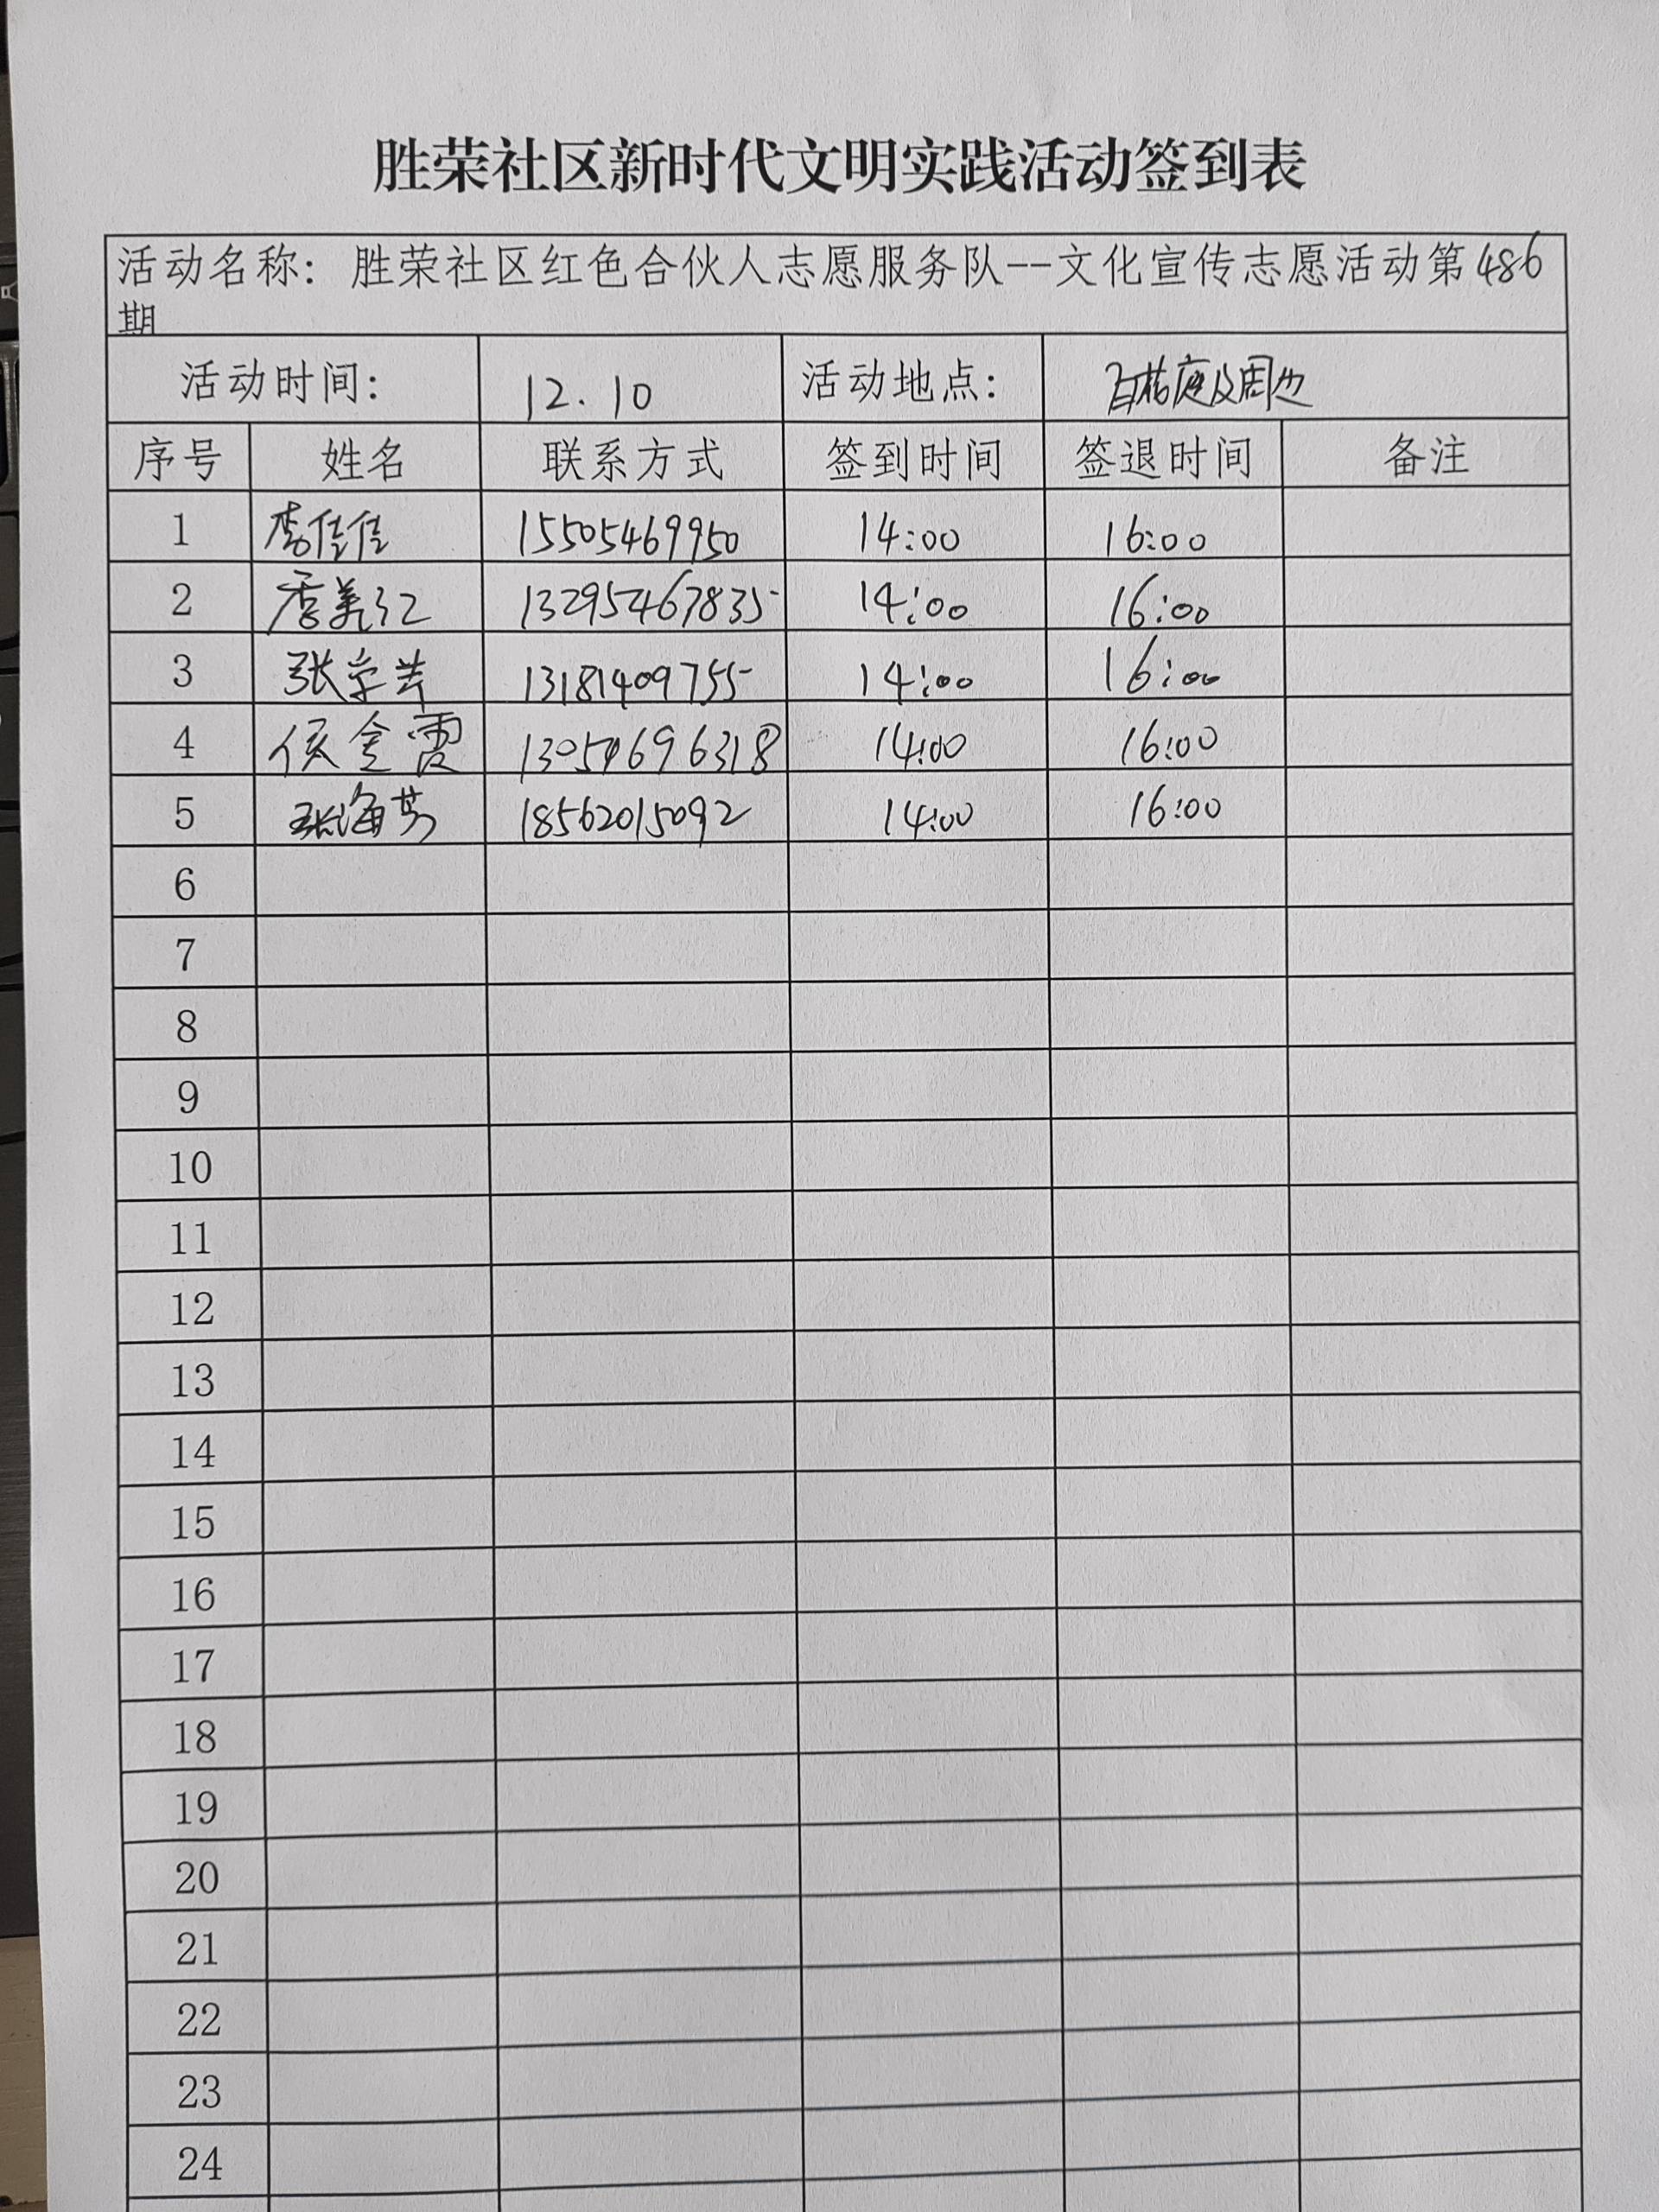 胜荣社区新时代文明实践活动签到表
活动名称：胜荣社区红色合伙人志愿服务队--文化宣传志愿活动第486
期
活动时间： 12.10 活动地点： 及周边
序号 姓名 联系方式 签到时间 签退时间 备注
1 李佳佳 15505469950 14:00 16:00
2 季美江 13295467835 14:00 16:00
3 张学芳 13181409755 14:00 16:00
4 侯金霞 13054696318 14:00 16:00
5 张海芳 18562015092 14:00 16:00
6
7
8
9
10
11
12
13
14
15
16
17
18
19
20
21
22
23
24